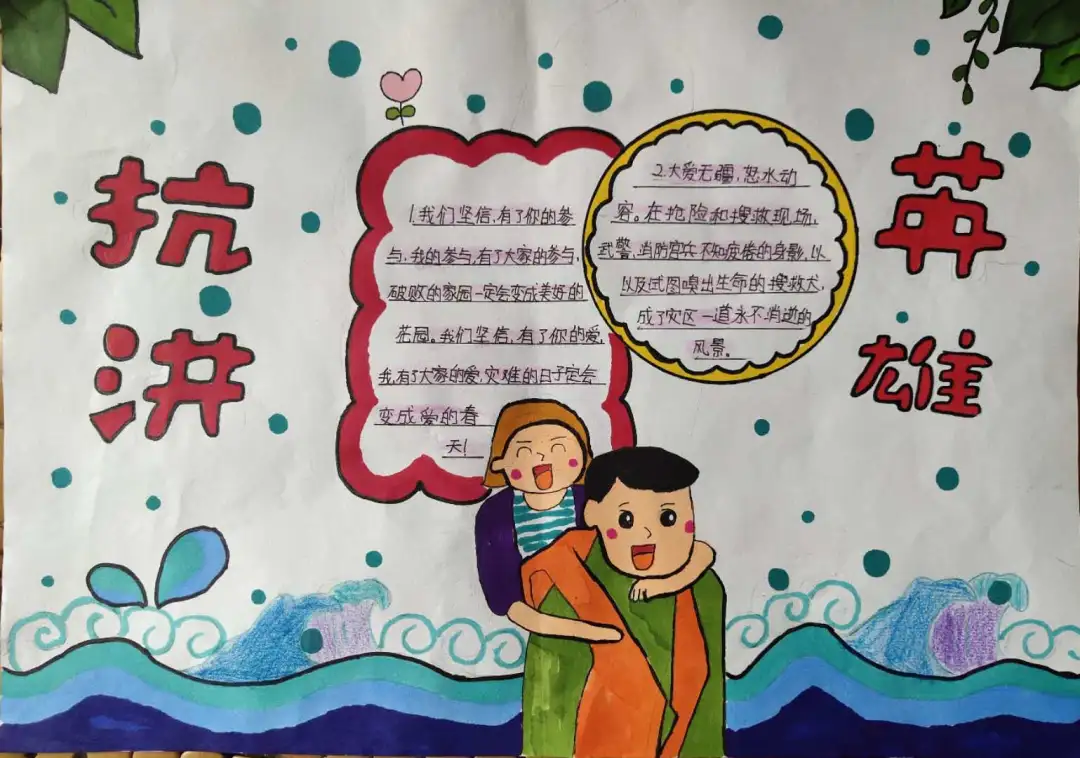 抗洪
英雄
1.我们坚信,有了你的参
与,我的参与,有了大家的参与,
破败的家园一定会变成美好的
花园。我们坚信,有了你的爱,
我,有了大家的爱,灾难的日子定会
变成爱的春
天!
2.大爱无疆,怒水动
容。在抢险和搜救现场,
武警,消防官兵不知疲倦的身影,以
以及试图嗅出生命的搜救犬,
成了灾区一道永不消逝的
风景。